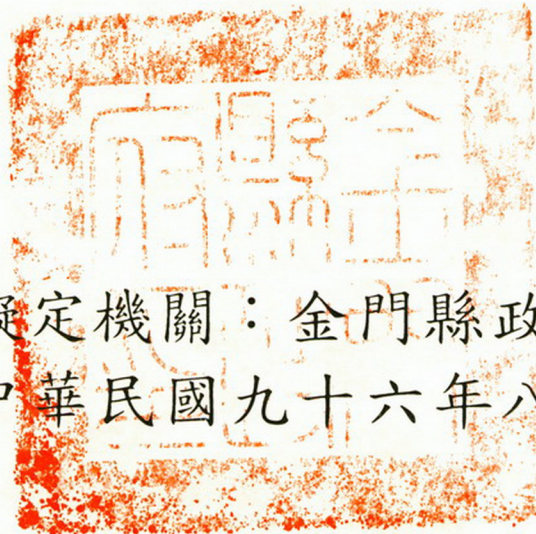 擬定機關：金門縣政
中華民國九十六年八